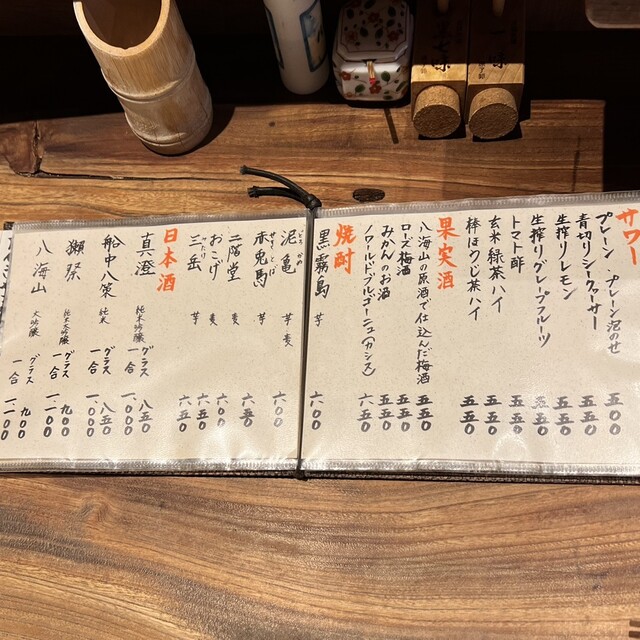 サワー
プレーン・プレーン泡のせ 五〇〇
青切りシークヮーサー 五五〇
生搾りレモン 五五〇
生搾りグレープフルーツ 五五〇
トマト酢 五五〇
玄米緑茶ハイ 五五〇
棒ほうじ茶ハイ 五五〇
果実酒
八海山の原酒で仕込んだ梅酒 五五〇
ローズ梅酒 五五〇
みかんのお酒 五五〇
ノワールドブルゴーニュ(カシス) 六五〇
焼酎
黒霧島 芋 六〇〇
泥亀 芋麦 六〇〇
赤兎馬 芋
二階堂 麦 六五〇
おこげ 麦 六〇〇
三岳 芋 六五〇
日本酒
真澄 純米吟醸 グラス 八五〇
一合
船中八策 純米 グラス 八五〇
一合 一、〇〇〇
獺祭 純米大吟醸 グラス 九〇〇
一合 一、一〇〇
八海山 大吟醸 グラス 九〇〇
一合 一、一〇〇